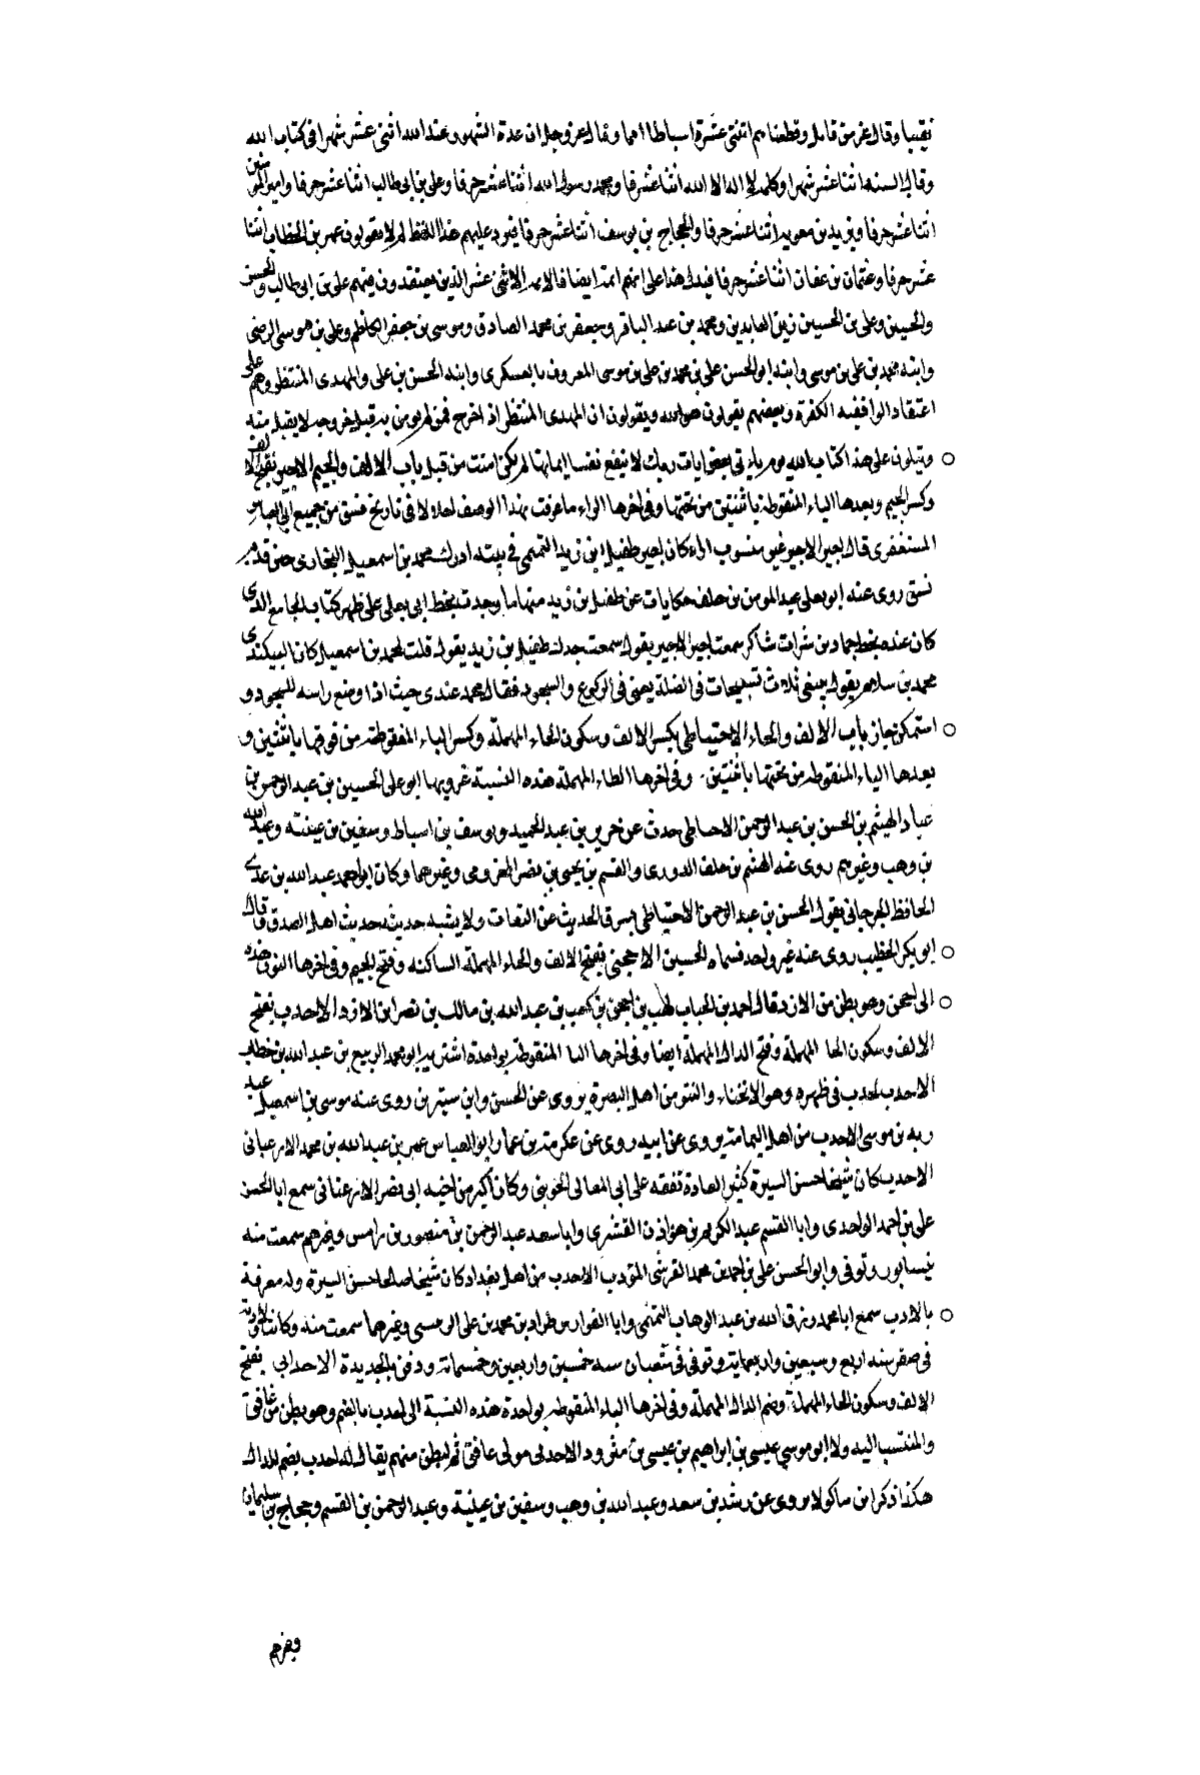 نقيبا وقال عز من قايل وقطعناهم اثنتى عشرة اسباطا امما وقال عز وجل ان عدة الشهور عند الله اثنى عشر شهرا فى كتاب الله
وقال السنه اثنا عشر شهرا وكلمه لا اله الا الله اثنا عشر حرفا ومحمد رسول الله اثنا عشر حرفا وعلى بن ابى طالب اثنا عشر حرفا وامير المومنين
اثنا عشر حرفا ويزيد بن معويه اثنا عشر حرفا والحجاج بن يوسف اثنا عشر حرفا فيرد عليهم هذا اللفظ لم لا يقولون عمر بن الخطاب اثنا
عشر حرفا وعثمان بن عفان اثنا عشر حرفا فيدل هذا على انهم ائمة ايضا فالايمه الاثنى عشر الذين يعتقدون فيهم على بن ابى طالب والحسن
والحسين وعلى بن الحسين زين العابدين ومحمد بن على الباقر وجعفر بن محمد الصادق وموسى بن جعفر الكاظم وعلى بن موسى الرضى
وابنه محمد بن على بن موسى وابنه ابو الحسن على بن محمد بن على بن موسى المعروف بالعسكرى وابنه الحسن بن على والمهدى المنتظر وهم على
اعتقاد الواقفيه الكفرة وبعضهم يقولون هو الله ويقولون ان المهدى المنتظر اذا خرج فمن لم يومن به قبل خروجه لا يقبل منه
ويتلون على هذا كتاب الله يوم ياتى بعض ايات ربك لا ينفع نفسا ايمانها لم تكن امنت من قبل باب الالف والجيم الاجير بفتح الالف
وكسر الجيم وبعدها الياء المنقوطة باثنتين من تحتها وفى اخرها الراء ما عرفت بهذا الوصف احدا الا فى تاريخ نسف من جميع ابى العباس
المستغفرى قال بجير الاجير غير منسوب اراه كان اجير طفيل ابن زيد التميمى فى بيته ادرك محمد بن اسمعيل البخارى حين قدم
نسف روى عنه ابو يعلى عبد المومن بن خلف حكايات عن طفيل بن زيد منها ما وجدت بخط ابى يعلى على ظهر كتاب الجامع الذى
كان عنده بخط حماد بن شاكر سمعت بجير الاجير يقول سمعت جدك طفيل بن زيد يقول قلت لمحمد بن اسمعيل كان البيكندى
محمد بن سلام يقول ينبغى ثلاث تسبيحات فى الصلة يعنى فى الركوع والسجود فقال محمد عندى حيث اذا وضع راسه للسجود و
استمكن جاز باب الالف والحاء الاحتياطى بكسر الالف وسكون الحاء المهملة وكسر التاء المنقوطة من فوقها باثنتين و
بعدها الياء المنقوطه من تحتها باثنتين وفى اخرها الطاء المهملة هذه النسبة عرف بها ابو على الحسين بن عبد الرحمن بن
عباد الهيثم بن الحسن بن عبد الرحمن الاحتياطى حدث عن جرير بن عبد الحميد ويوسف بن اسباط وسفين بن عيينة وعبد الله
بن وهب وغيرهم روى عنه الهيثم بن خلف الدورى والقسم بن يحيى بن نصر المخرومى وغيرهما وكان ابو احمد عبد الله بن عدى
الحافظ الجرجانى يقول الحسن بن عبد الرحمن الاحتياطى يسرق الحديث عن الثقات ولا يشبه حديثه حديث اهل الصدق قال
ابو بكر الخطيب روى عنه غير واحد فسماه الحسين الاحجنى بفتح الالف والحاء المهملة الساكنه وفتح الجيم وفى اخرها النون هذه
الى احجن وهو بطن من الازد قال احمد بن الحباب لهب بن احجن بن كعب بن عبد الله بن مالك بن نصر ابن الازد الاحدب بفتح
الالف وسكون الحا المهملة وفتح الدال المهملة ايضا وفى اخرها البا المنقوطة بواحدة اشتهر بهذا ابو محمد الربيع بن عبد الله بن خطاف
الاحدب لحدب فى ظهره وهو الانحناء والنتو من اهل البصرة يروى عن الحسن وابن سيرين روى عنه موسى بن اسمعيل عبد
ربه بن موسى الاحدب من اهل اليمامة يروى عن ابيه روى عن عكرمة بن عمار وابو العباس عمر بن عبد الله بن محمد الارغيانى
الاحدب كان شيخا حسن السيرة كثير العبادة تفقه على ابى المعالى الجوينى وكان اكبر من اخيه ابى نصر الارغيانى سمع ابا الحسن
على بن احمد الواحدى وابا القسم عبد الكريم بن هوازن القشيرى وابا سعد عبد الرحمن بن منصور بن رامش وغيرهم سمعت منه
نيسابور وتوفى وابو الحسن على بن احمد بن محمد القرشى المؤدب الاحدب من اهل بغداد كان شيخا صالحا حسن السيرة وله معرفة
بالادب سمع ابا محمد رزق الله بن عبد الوهاب التميمى وابا الفوارس طراد بن محمد بن على الزينبى وغيرهما سمعت منه وكانت ولادته
فى صفر سنه اربع وسبعين واربعماية وتوفى فى شعبان سنه خمسين واربعين وخمسماية ودفن بالجديدة الاحدبى بفتح
الالف وسكون الحاء المهملة وضم الدال المهملة وفى اخرها الباء المنقوطه بواحدة هذه النسبة الى احدب بالضم وهو بطن من غافق
والمنتسب اليه ولاا ابو موسى عيسى بن ابراهيم بن عيسى بن مثرود الاحدبى مولى غافق ثم لبطن منهم يقال له احدب بضم الدال
هكذا ذكر ابن ماكولا يروى عن رشد بن سعد وعبد الله بن وهب وسفين بن عيينة وعبد الرحمن بن القسم وحجاج بن سليمان
وغيرهم